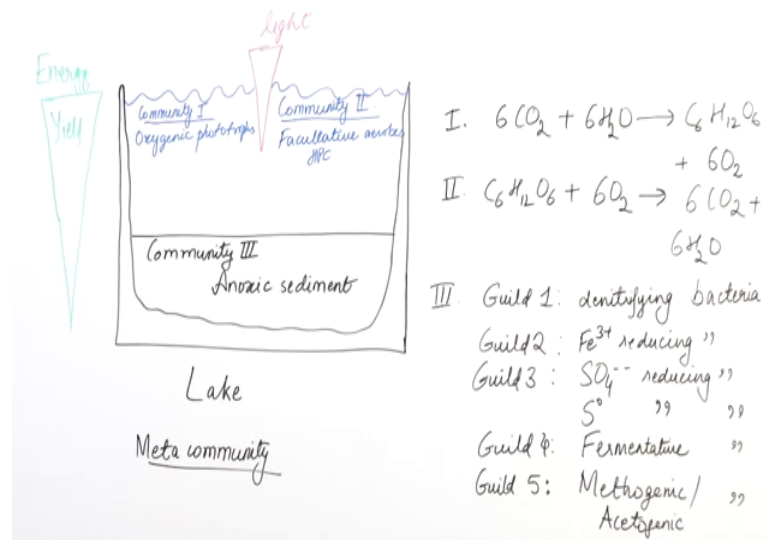 light
Energy
Yield
Community I
Oxygenic phototrophs
Community II
Facultative aerobes
HPC
Community III
Anoxic sediment
Lake
Meta community
I. 6CO₂ + 6H₂O → C₆H₁₂O₆
+ 6O₂
II C₆H₁₂O₆ + 6O₂ → 6CO₂ +
6H₂O
III Guild 1: denitrifying bacteria
Guild 2: Fe³⁺ reducing "
Guild 3: SO₄⁻⁻ reducing "
S⁰ " "
Guild 4: Fermentative "
Guild 5: Methogenic/ "
Acetogenic